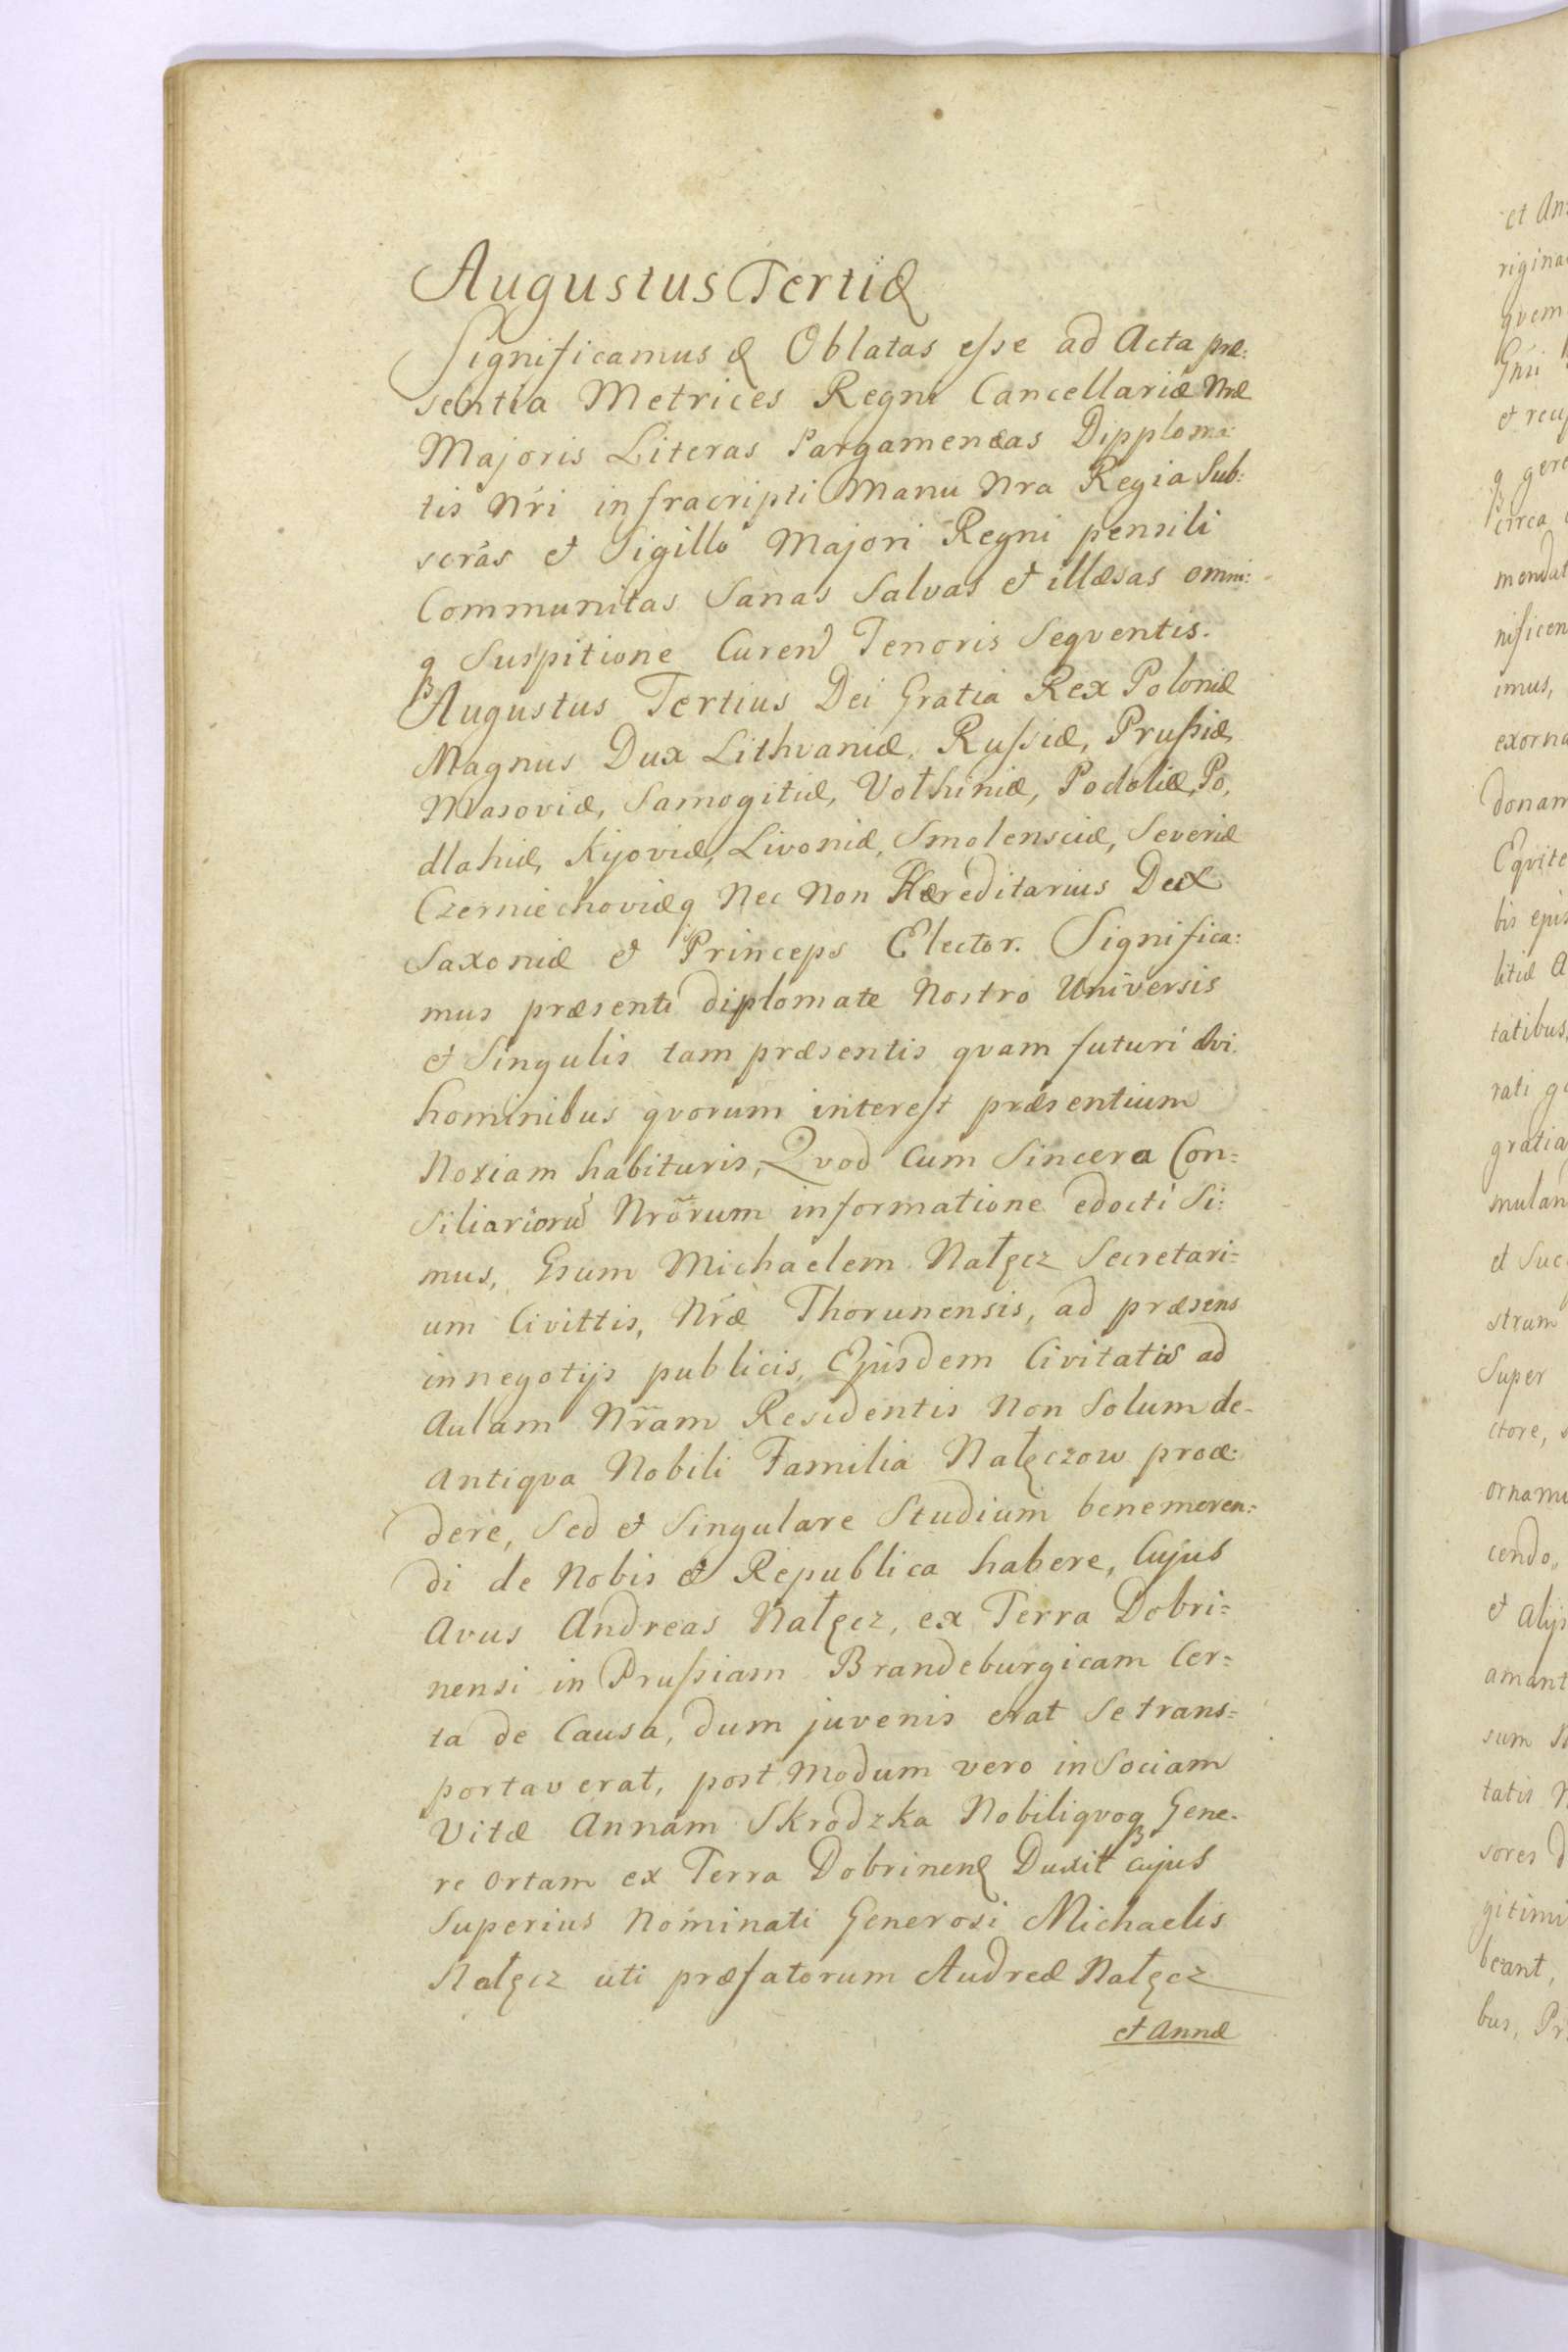 Augustus Tertiꝰ
Significamus & Oblatas eſse ad Acta præ:
sentia Metrices Regni Cancellariæ Nræ
Majoris Literas Pargameneas Dipploma
tis Nri infracripti Manu Nra Regia Sub:
scras et Sigillo Majori Regni pensili
Communitas Sanas Salvas et illæsas omni:
q Suspitione Caren Tenoris Seqventis.
Augustus Tertius Dei Gratia Rex Poloniæ
Magnus Dux Lithvaniæ, Ruſsiæ, Pruſsiæ,
Masoviæ, Samogitiæ, Volhiniæ, Podoliæ, Po,
dlahiæ, Kijoviæ, Livoniæ, Smolensciæ, Severiæ
Czerniechoviæq Nec Non Hæreditarius Dux
Saxoniæ et Princeps Elector. Significa:
mus præsenti diplomate Nostro Universis
et Singulis tam præsentis qvam futuri ævi.
hominibus qvorum intereſt præsentium
Notiam habituris, Qvod Cum Sincera Con=
siliarioru Nrõrum informatione edocti Si:
mus, Gsum Michaelem Nałęcz Secretari=
um Civittis, Nræ Thorunensis, ad præsens
in negotijs publicis, Ejusdem Civitatis ad
Aulam Nr̃am Residentis Non Solum de-
Antiqva Nobili Familia Nałęczow proce:
dere, Sed et Singulare Studium benemeren:
di de Nobis et Republica habere, Cujus
Avus Andreas Nałęcz, ex Terra Dobri=
nensi in Pruſsiam Brandeburgicam Cer=
ta de Causa, dum juvenis erat Se trans=
portaverat, post Modum vero in Sociam
Vitæ Annam Skrodzka Nobiliqvoq Gene-
re Ortam ex Terra Dobrinen Duxit Cujus
Superius Nominati Generosi Michaelis
Nałęcz uti præfatorum Andreæ Nałęcz
et Annæ
et An
rigina
qvem
Gnri
et recu
q gere
circa
mendat
nificen
imus,
exorna
donam
Eqvite
bis epis
litiæ A
tatibus,
rati g
gratia
mulan
et Suc
strum
Super
ctore, s
ornam
cendo,
et Alijs
amant
sum N
tatis N
sores d
gitim
beant,
bus, Pr